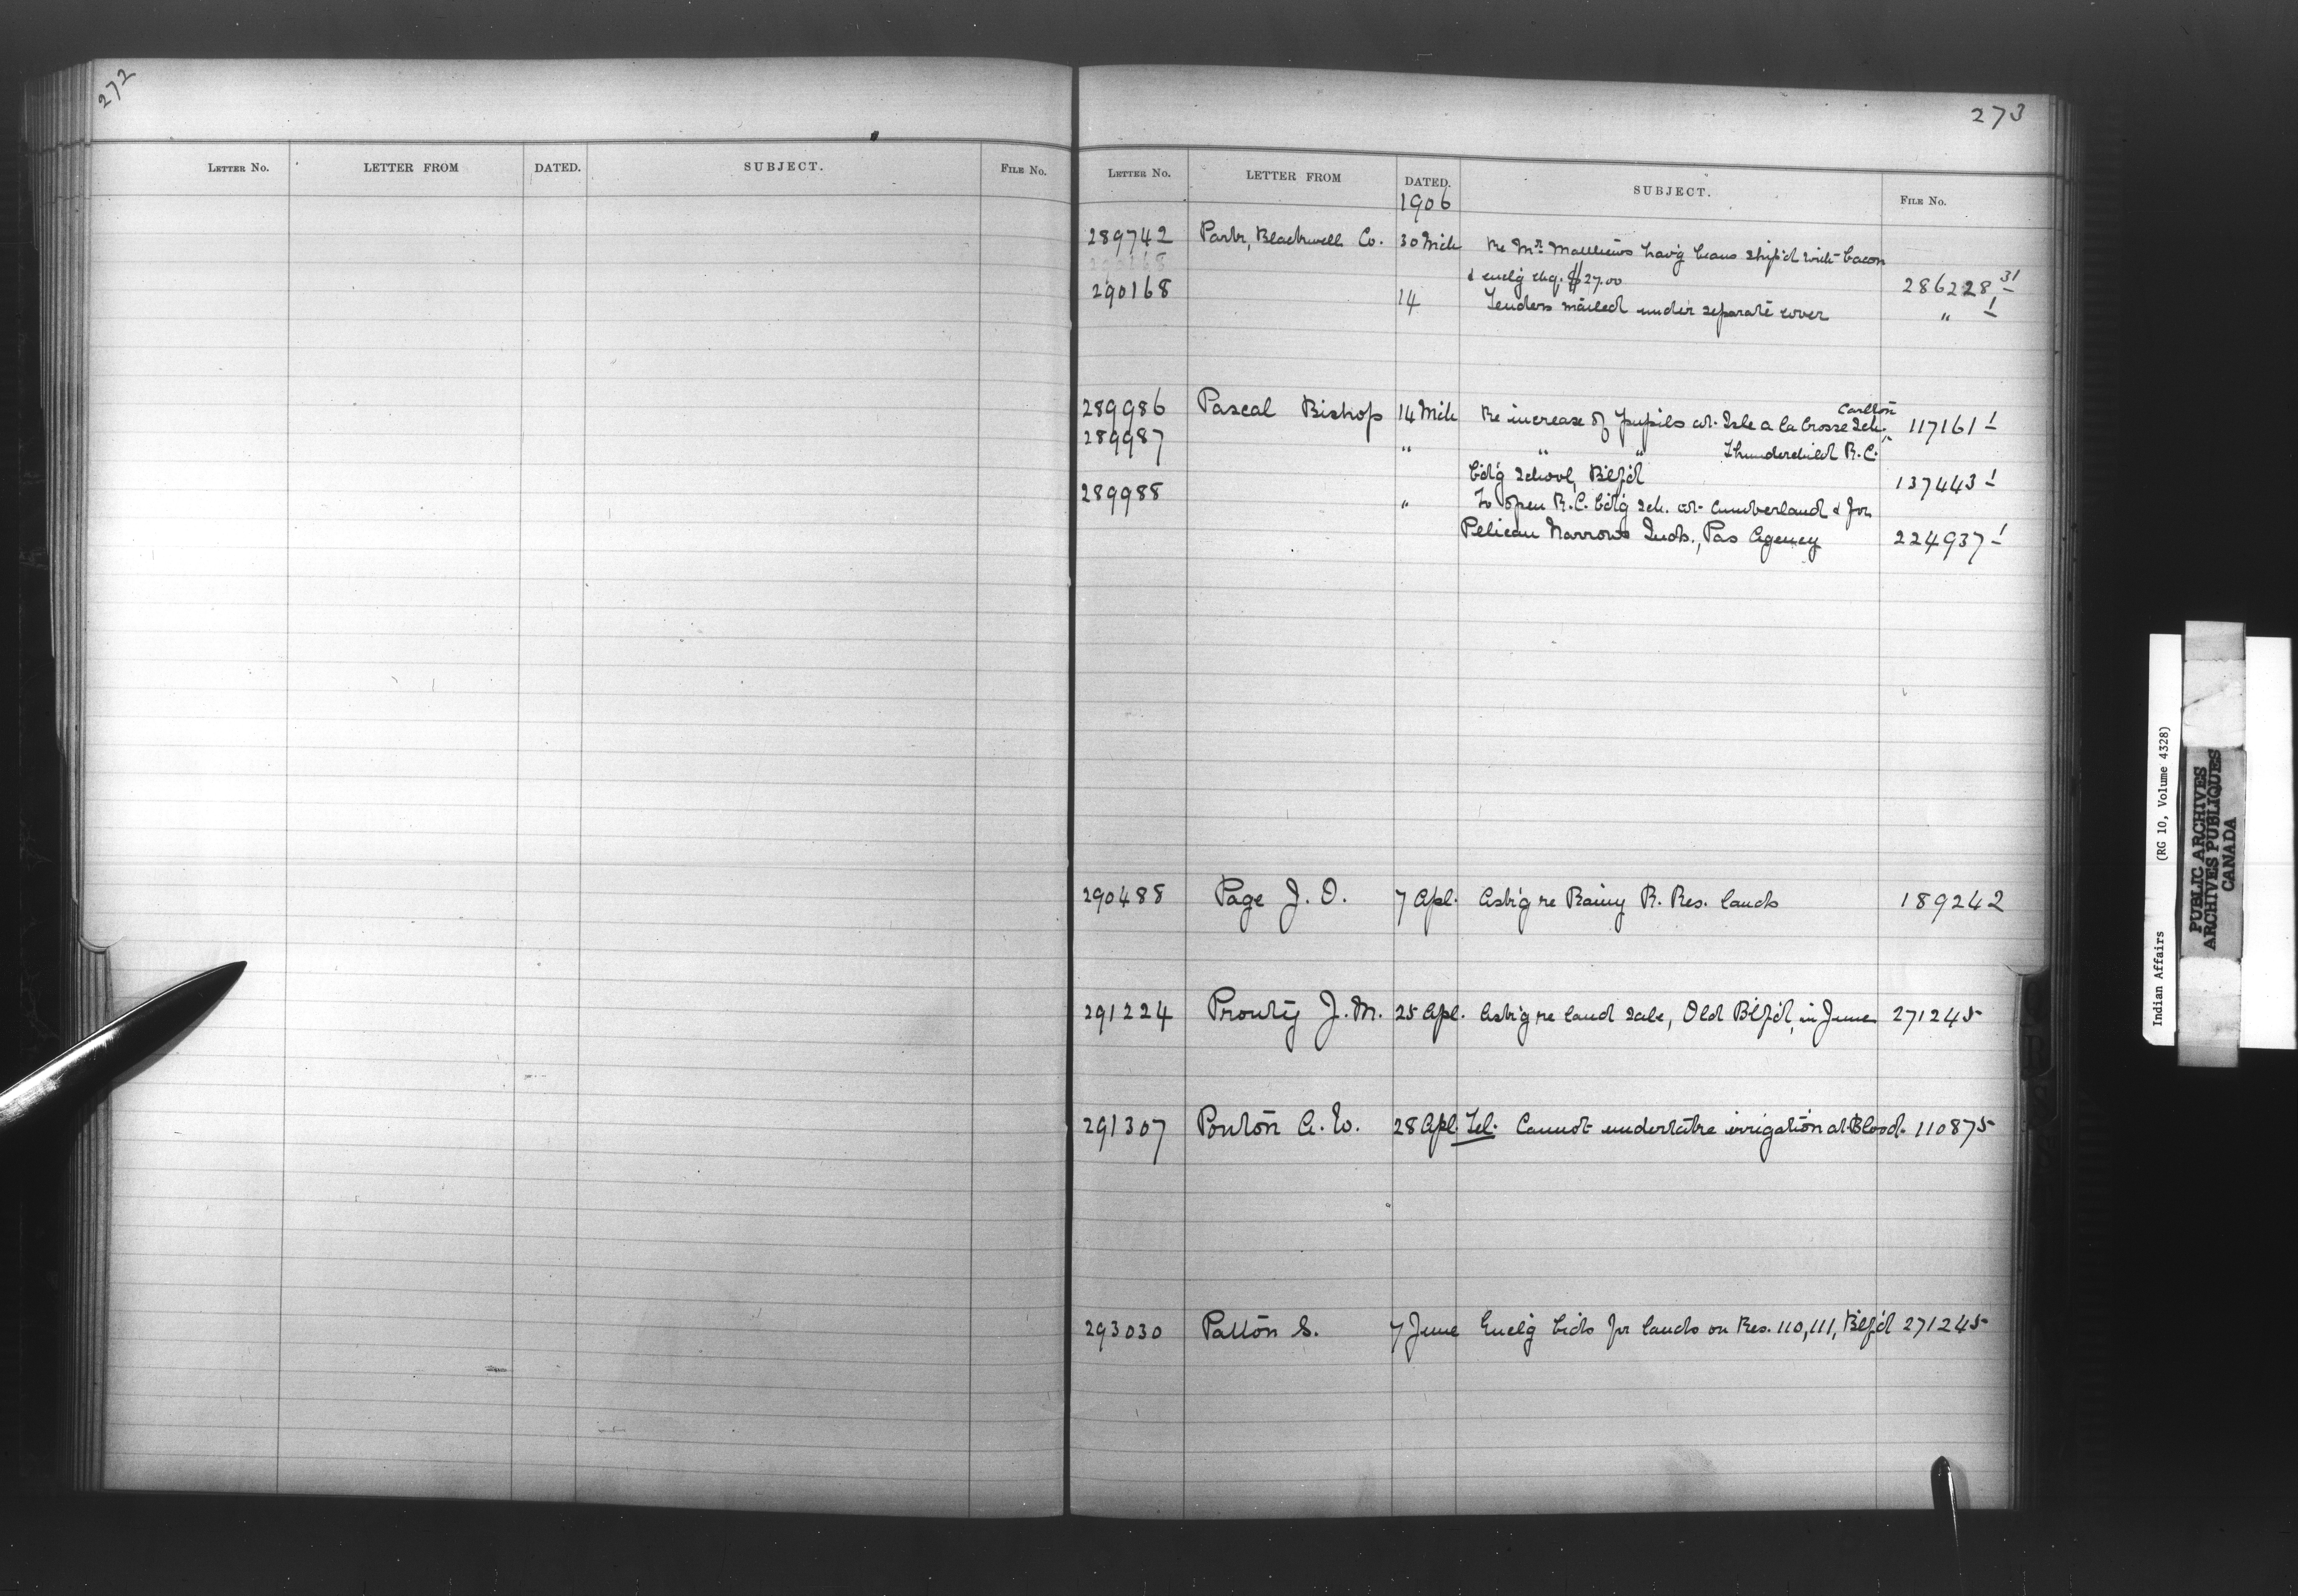 272
LETTER NO. LETTER FROM DATED. SUBJECT. FILE NO.
273
LETTER NO. LETTER FROM DATED. SUBJECT. FILE NO.
1906
289742 Park, Blackwell Co. 30 Mch Re Mr. Matthews hav'g beans ship'd with bacon
& encl'g chq. $27.00 286228 31
290168 14 Tenders mailed under separate cover " 1
289986 Pascal Bishop 14 Mch Re increase of pupils at Isle a la Crosse Sch., Carlton 117161 1
289987 " " " Thunderchild R.C.
b'd'g School, B'lf'd 137443 1
289988 " To open R.C. b'd'g Sch. at Cumberland & for
Pelican Narrows Inds., Pas Agency 224937 1
290488 Page J. O. 7 Apl. Ask'g re Rainy R. Res. lands 189242
291224 Prouty J. M. 25 Apl. Ask'g re land sale, Old B'lf'd, in June 271245
291307 Ponton A. W. 28 Apl. Tel. Cannot undertake irrigation at Blood. 110875
293030 Patton S. 7 June Encl'g bids for lands on Res. 110, 111, B'lf'd 271245
Indian Affairs (RG 10, Volume 4328)
PUBLIC ARCHIVES
ARCHIVES PUBLIQUES
CANADA